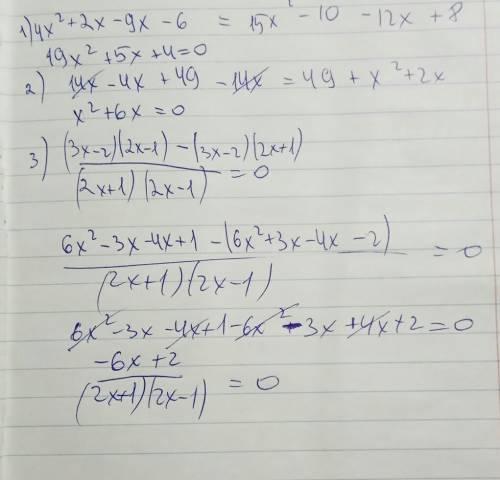 1) 4x² + 2x - 9x - 6 = 15x² - 10 - 12x + 8
19x² + 5x + 4 = 0
2) 14x - 4x + 49 - 14x = 49 + x² + 2x
x² + 6x = 0
3) (3x-2)(2x-1) - (3x-2)(2x+1)
(2x+1)(2x-1) = 0
6x² - 3x - 4x + 1 - (6x² + 3x - 4x - 2)
(2x+1)(2x-1) = 0
6x² - 3x - 4x + 1 - 6x² - 3x + 4x + 2 = 0
-6x + 2
(2x+1)(2x-1) = 0